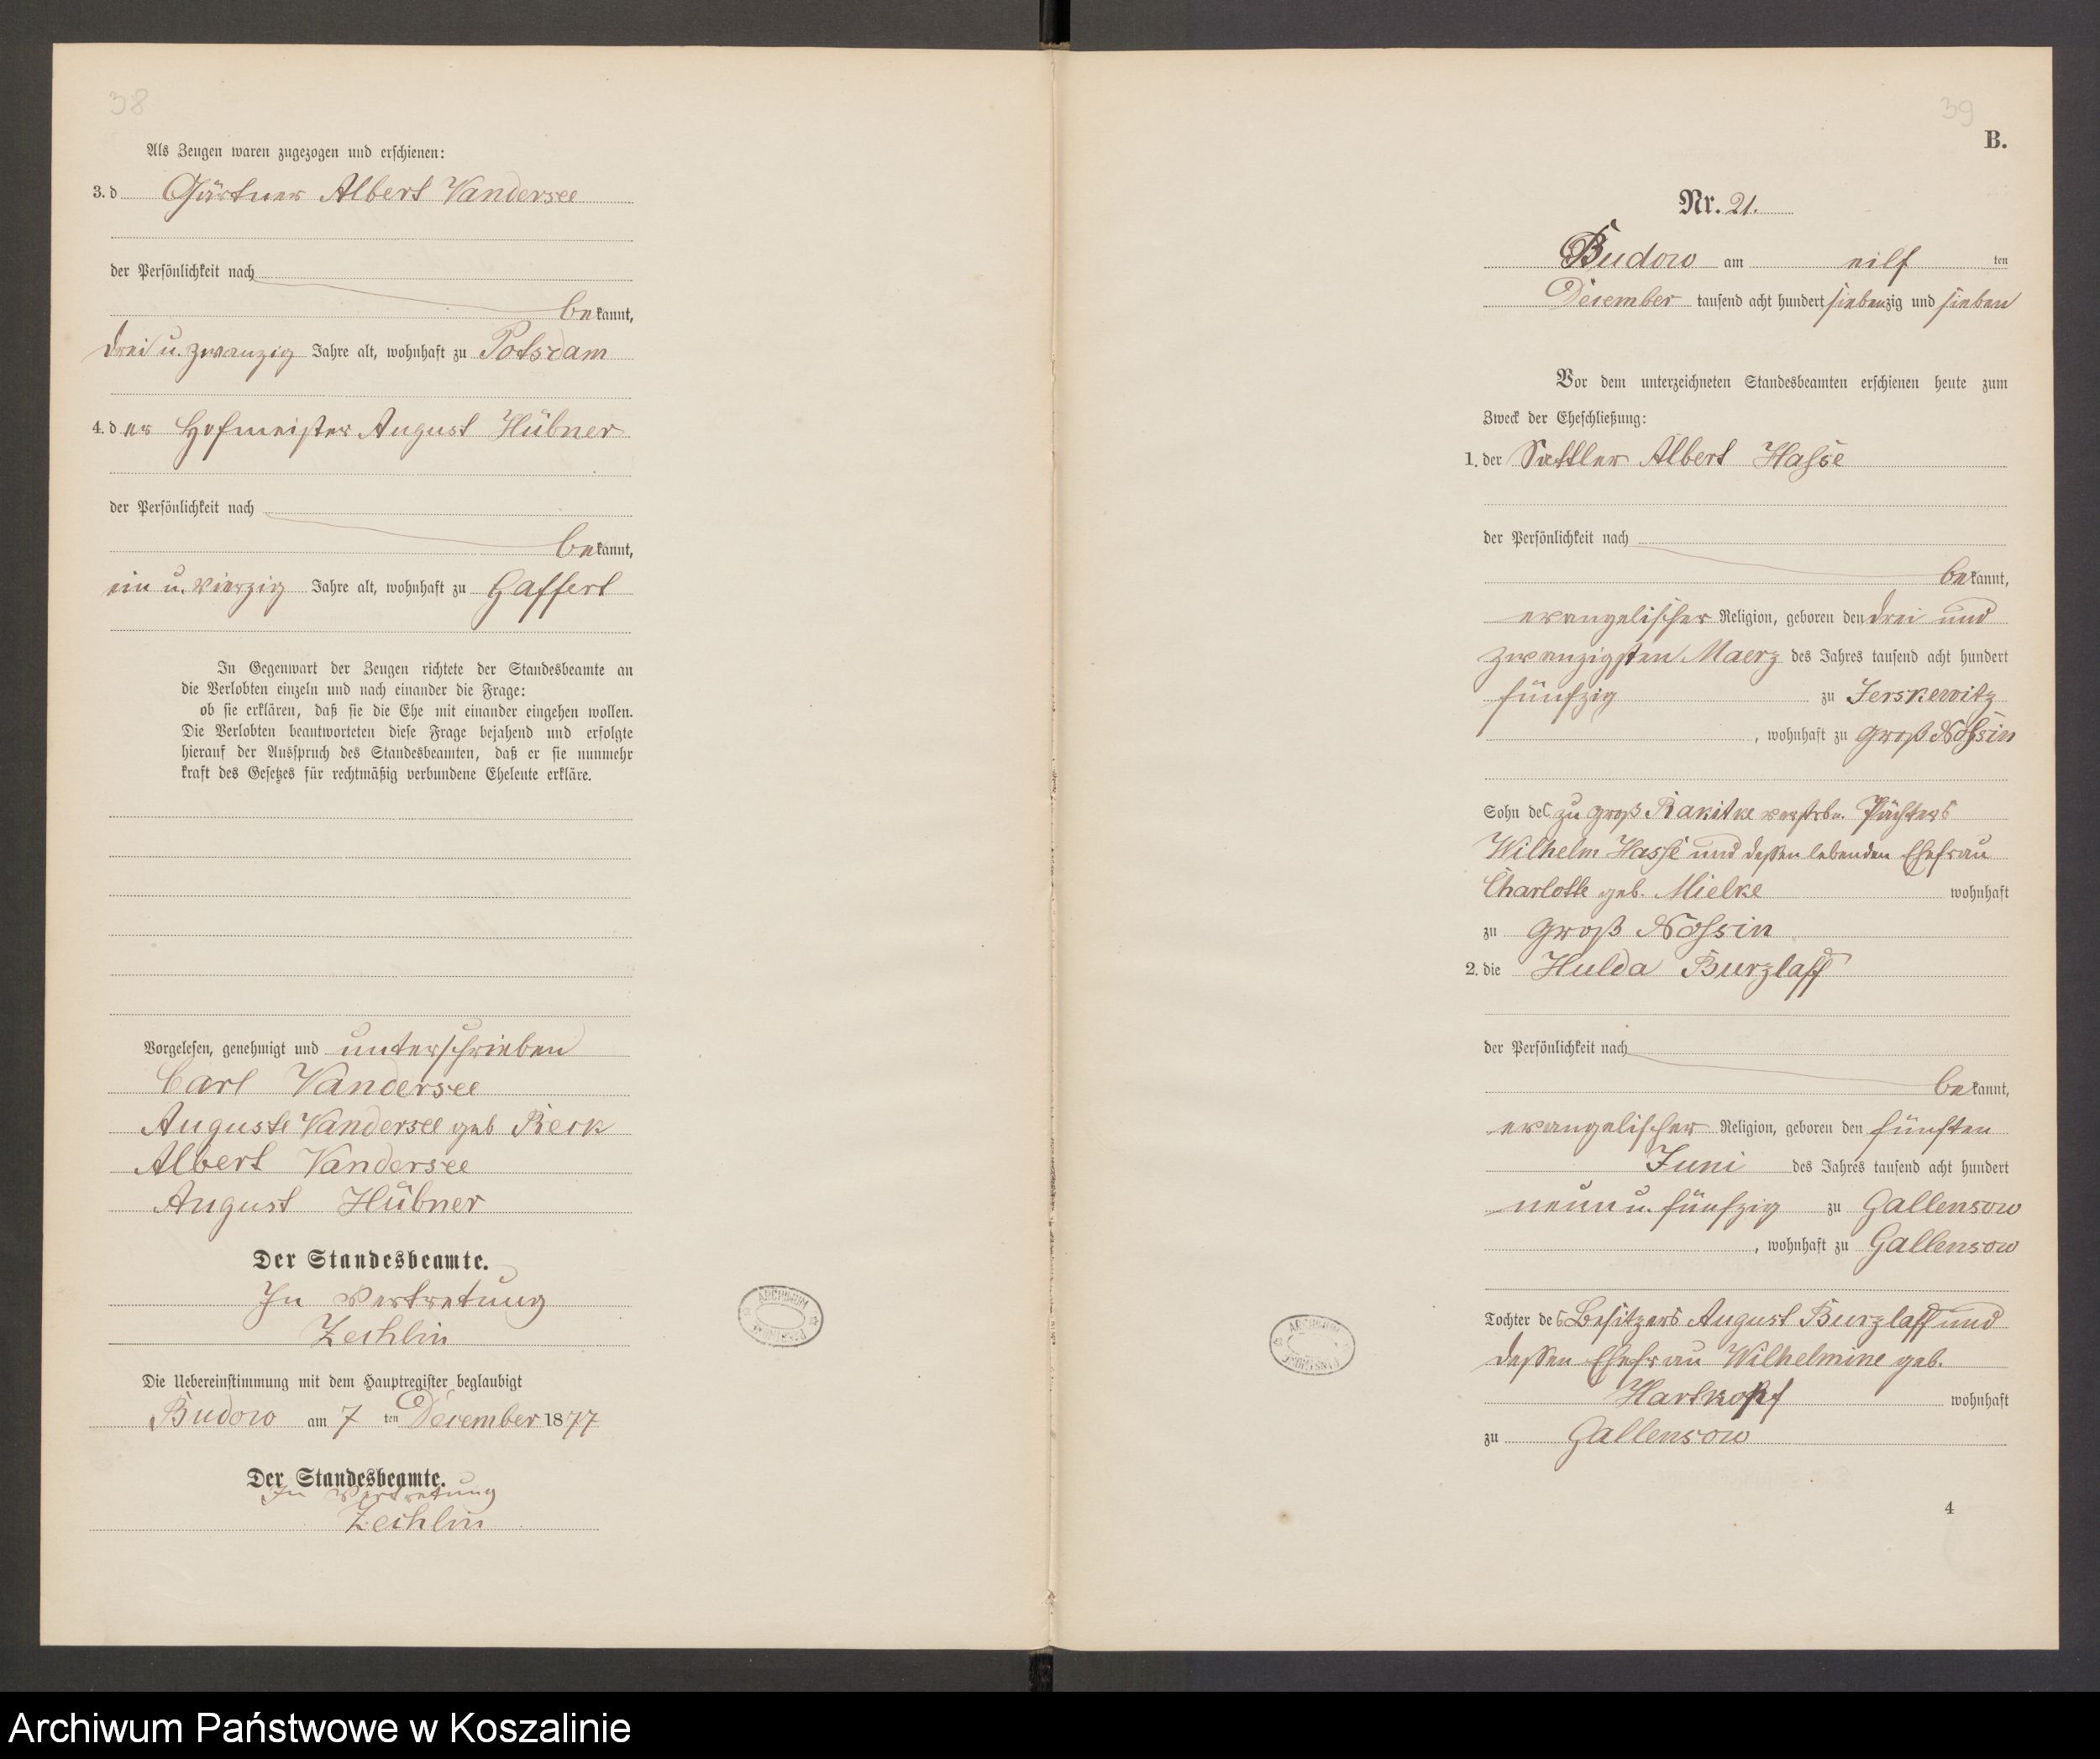 38
Als Zeugen waren zugezogen und erschienen:
3. d Gärtner Albert Vandersee
der Persönlichkeit nach
bekannt,
drei u. zwanzig Jahre alt, wohnhaft zu Potsdam
4. der Hofmeister August Hübner
der Persönlichkeit nach
bekannt,
ein u. vierzig Jahre alt, wohnhaft zu Gaffert
In Gegenwart der Zeugen richtete der Standesbeamte an
die Verlobten einzeln und nach einander die Frage:
ob sie erklären, daß sie die Ehe mit einander eingehen wollen.
Die Verlobten beantworteten diese Frage bejahend und erfolgte
hierauf der Ausspruch des Standesbeamten, daß er sie nunmehr
kraft des Gesetzes für rechtmäßig verbundene Eheleute erkläre.
Vorgelesen, genehmigt und unterschrieben
Carl Vandersee
Auguste Vandersee geb Reck
Albert Vandersee
August Hübner
Der Standesbeamte.
In Vertretung
Zechlin
Die Uebereinstimmung mit dem Hauptregister beglaubigt
Budow am 7 ten December 1877
Der Standesbeamte.
In Vertretung
Zechlin
39
B.
Nr. 21.
Budow am eilf ten
December tausend acht hundert siebenzig und sieben
Vor dem unterzeichneten Standesbeamten erschienen heute zum
Zweck der Eheschließung:
1. der Sattler Albert Hasse
der Persönlichkeit nach
bekannt,
evangelischer Religion, geboren den drei und
zwanzigsten Maerz des Jahres tausend acht hundert
fünfzig zu Jerskewitz
, wohnhaft zu Groß Nossin
Sohn des zu Groß Rakitke verstrbn. Pächters
Wilhelm Hasse und dessen lebenden Ehefrau
Charlotte geb. Mielke wohnhaft
zu Groß Nossin
2. die Hulda Burzlaff
der Persönlichkeit nach
bekannt,
evangelischer Religion, geboren den fünften
Juni des Jahres tausend acht hundert
neun u. fünfzig zu Gallensow
, wohnhaft zu Gallensow
Tochter des Besitzers August Burzlaff und
dessen Ehefrau Wilhelmine geb.
Hartkopf wohnhaft
zu Gallensow
4
ARCHIWUM
ARCHIWUM
Archiwum Państwowe w Koszalinie